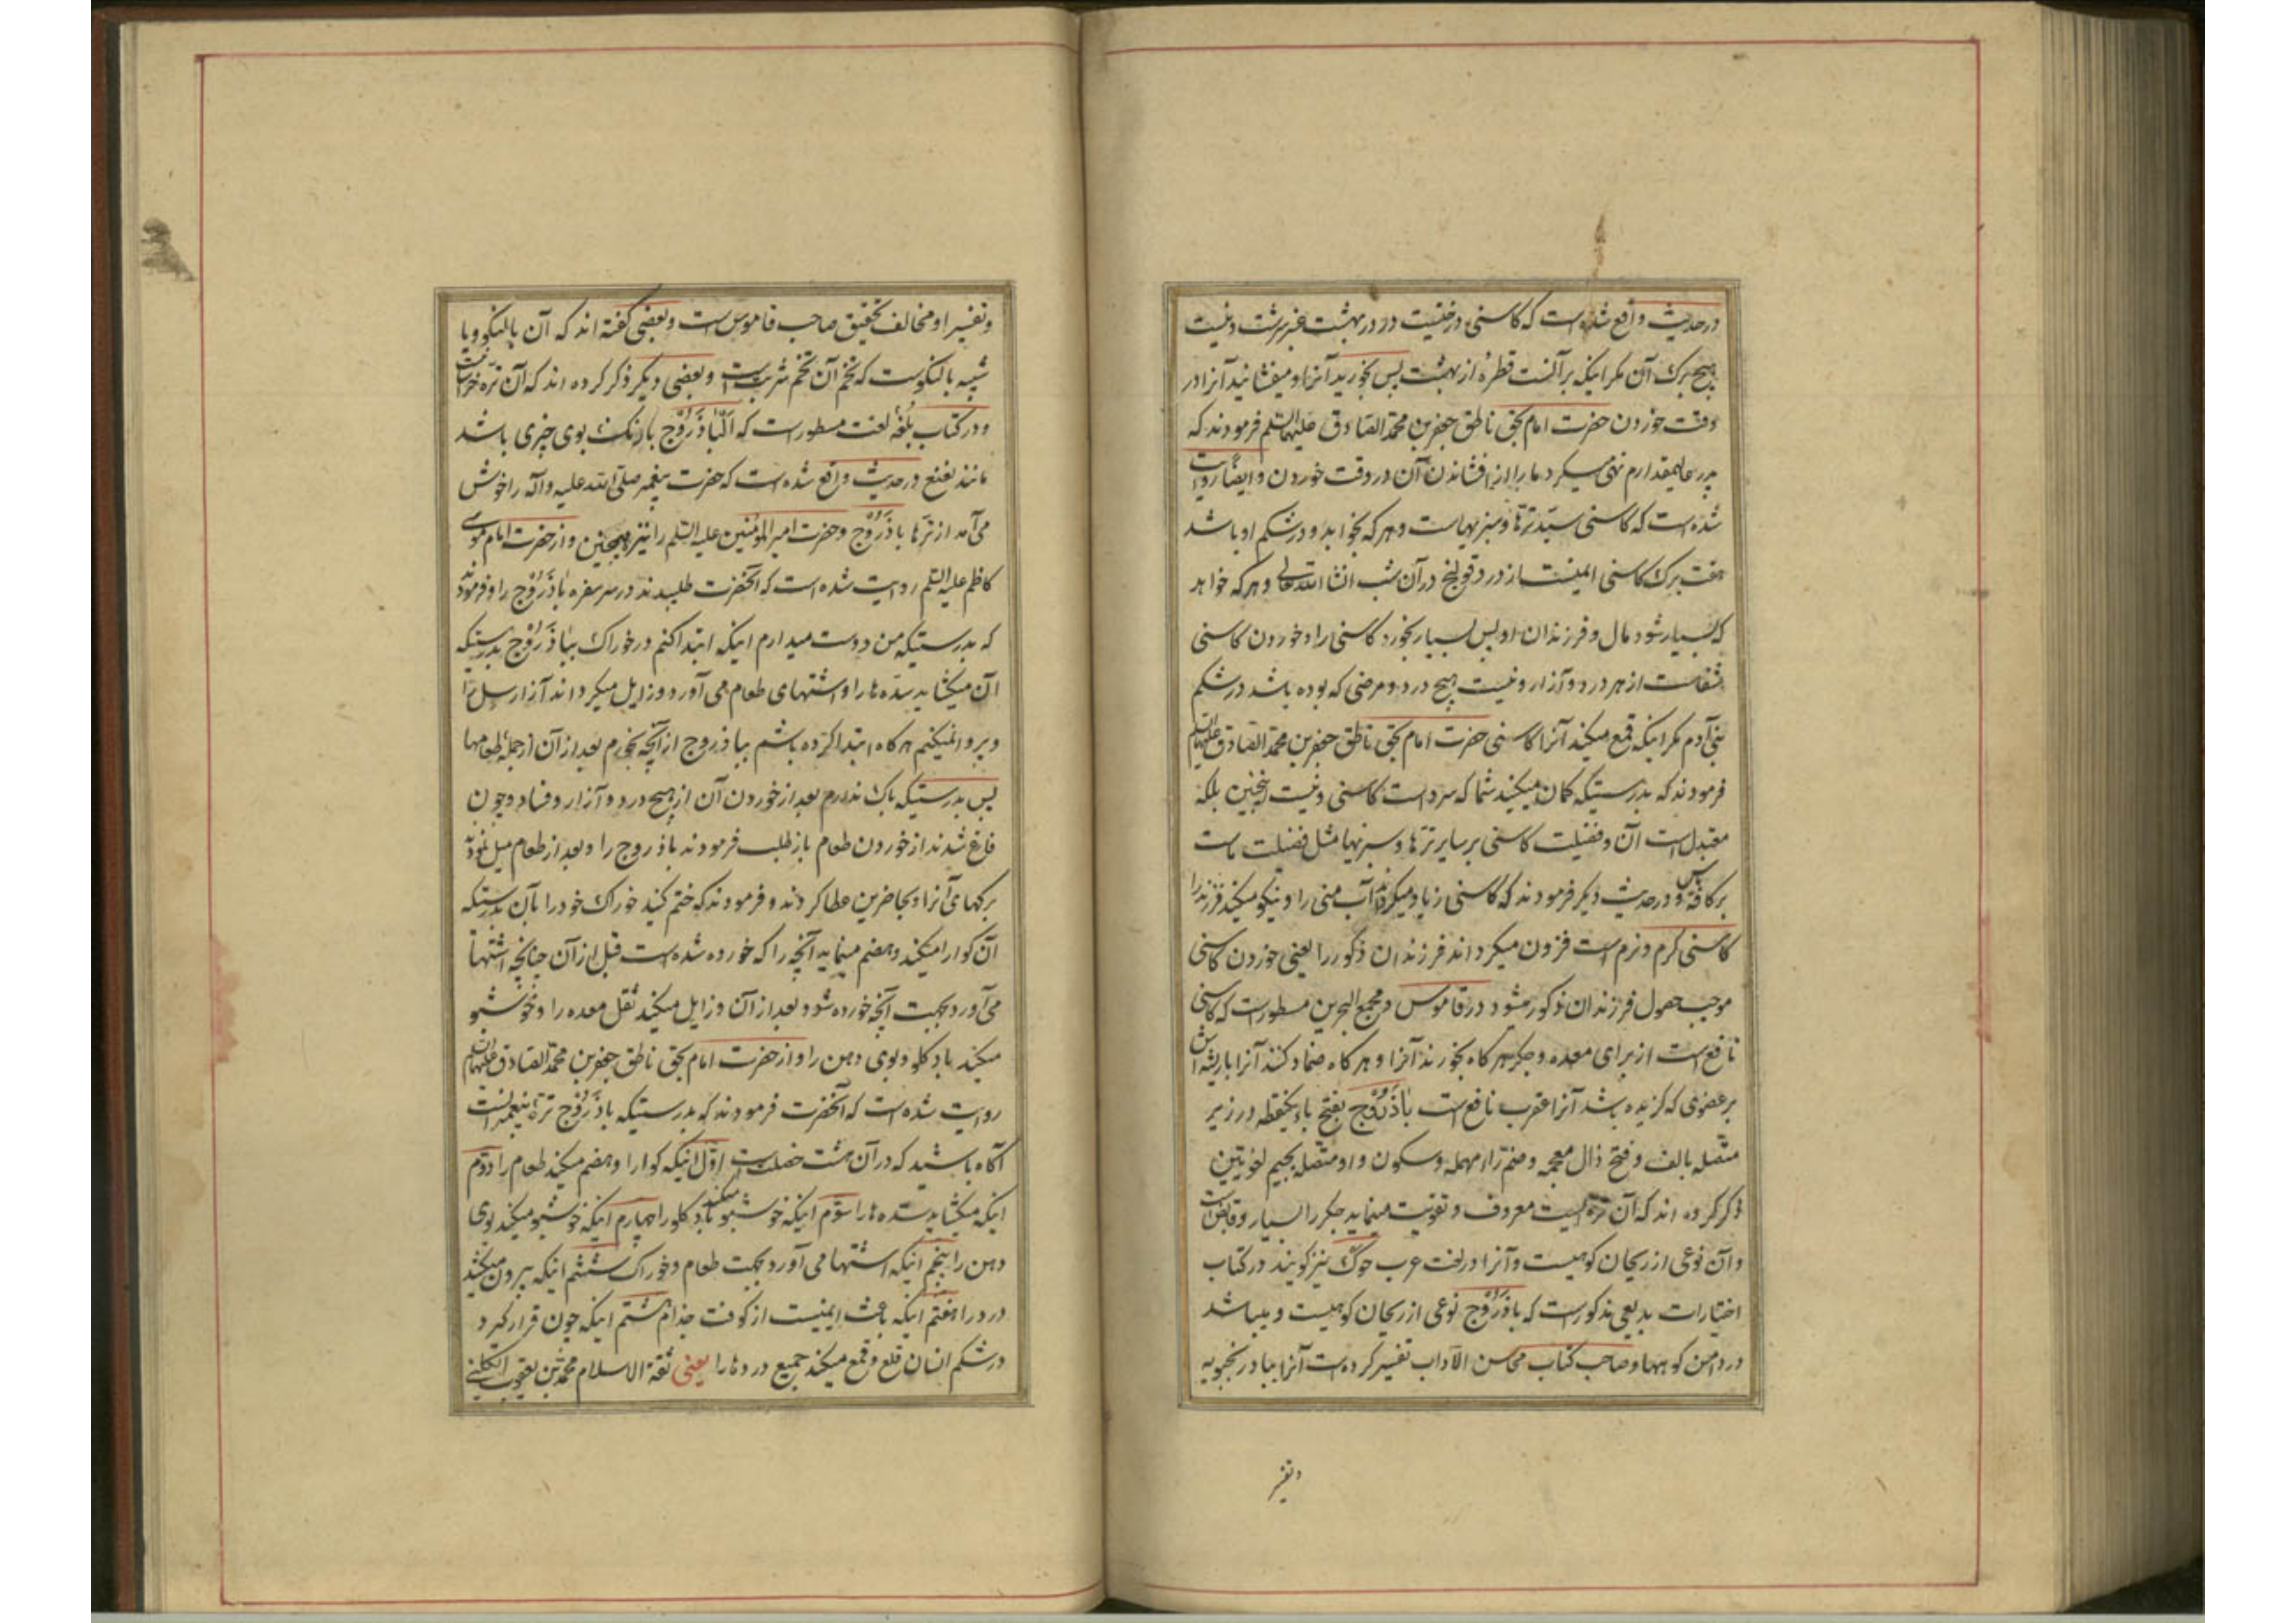 در حدیث واقع شده است که کاسنی درختیست در در بهشت عنبر سرشت و نیست
هیچ برک آن مکر اینکه بر آنست قطرهٔ از بهشت پس بخورید آنرا و میفشانید آنرا در
وقت خوردن حضرت امام بحق ناطق جعفر بن محمد الصادق علیهما السلم فرمودند که
پدر عالیمقدارم نهی میکرد ما را از افشاندن آن در وقت خوردن و ایضا روایت
شده است که کاسنی سید ترها و سبزیهاست و هر که بخوابد و در شکم او باشد
هفت برک کاسنی ایمنست از درد قولنج در آن شب انشا الله تعالی و هر که خواهد
که بسیار شود مال و فرزندان او پس بسیار بخورد کاسنی را و خوردن کاسنی
شفاست از هر درد و آزار و نیست هیچ درد و مرضی که بوده باشد در شکم
بنی آدم مکر اینکه قمع میکند آنرا کاسنی حضرت امام بحق ناطق جعفر بن محمد الصادق علیهما السلم
فرمودند که بدرستیکه کمان میکنید شما که سرد است کاسنی و نیست اینچنین بلکه
معتدل است آن و فضیلت کاسنی بر سایر ترها و سبزیها مثل فضیلت ماست
بر کافهٔ ناس و در حدیث دیکر فرمودند که کاسنی زیاد میکرداند آب منی را و نیکو میکند فرزند را
کاسنی کرم و نرم است فزون میکرداند فرزندان ذکور را یعنی خوردن کاسنی
موجب حصول فرزندان ذکور میشود در قاموس و مجمع البحرین مسطور است که کاسنی
نافع است از برای معده و جکر هر کاه بخورند آنرا و هر کاه ضماد کنند آنرا با ریشه اش
بر عضوی که کزیده باشد آنرا عقرب نافع است باذَرُوْج بفتح باء یکنقطه در زیر
متصله بالف و فتح ذال معجمه و ضم راء مهمله و سکون واو متصله بجیم لغویین
ذکر کرده اند که آن تره ایست معروف و تقویت مینماید جکر را بسیار و قابض است
و آن نوعی از ریحان کوهیست و آنرا در لغت عرب حوک نیز کویند در کتاب
اختیارات بدیعی مذکور است که باذَرُوْج نوعی از ریحان کوهیست و میباشد
در دامن کوهها و صاحب کتاب محاسن الآداب تفسیر کرده است آنرا ببادرنجبویه
و تفسیر
و تفسیر او مخالف تحقیق صاحب قاموس است و بعضی کفته اند که آن بالنکو و یا
شبیه بالنکوست که تخم آن تخم شربت است و بعضی دیکر ذکر کرده اند که آن تره خراسانیست
و در کتاب بلغهٔ لغت مسطور است که اَلباذَرُوْج بادرنک بوی چیزی باشد
مانند نعنع در حدیث واقع شده است که حضرت پیغمبر صلی الله علیه و آله را خوش
می آمد از ترها باذَرُوْج و حضرت امیر المؤمنین علیه السلم را نیز همچنین و از حضرت امام موسی
کاظم علیه السلم روایت شده است که آنحضرت طلبیدند در سر سفره باذَرُوْج را و فرمودند
که بدرستیکه من دوست میدارم اینکه ابتدا کنم در خوراک بباذَرُوْج بدرستیکه
آن میکشاید سده ها را و اشتهای طعام می آورد و زایل میکرداند آزار سل را
و پروا نمیکنم هر کاه ابتدا کرده باشم بباذروج از آنچه بخورم بعد از آن از جملهٔ طعامها
پس بدرستیکه باک ندارم بعد از خوردن آن از هیچ درد و آزار و فساد و چون
فارغ شدند از خوردن طعام باز طلب فرمودند باذروج را و بعد از طعام میل نمودند
برکهای آنرا و بحاضرین عطا کردند و فرمودند که ختم کنید خوراک خود را بآن بدرستیکه
آن کوارا میکند و هضم مینماید آنچه را که خورده شده است قبل از آن چنانچه اشتها
می آورد بجهت آنچه خورده شود بعد از آن و زایل میکند ثقل معده را و خوشبو
میکند باد کلو و بوی دهن را و از حضرت امام بحق ناطق جعفر بن محمد الصادق علیهما السلم
روایت شده است که آنحضرت فرمودند که بدرستیکه باذَرُوْج ترهٔ پیغمبرانست
آکاه باشید که در آن هشت خصلت است اول اینکه کوارا و هضم میکند طعام را دوم
اینکه میکشاید سده ها را سوم اینکه خوشبو میکند باد کلو را چهارم اینکه خوشبو میکند بوی
دهن را پنجم اینکه اشتها می آورد بجهت طعام و خوراک ششم اینکه بیرون میکشد
درد را هفتم اینکه باعث ایمنیست از کوفت جذام هشتم اینکه چون قرار کیرد
در شکم انسان قلع و قمع میکند جمیع دردها را یعنی ثقة الاسلام محمد بن یعقوب الکلینی